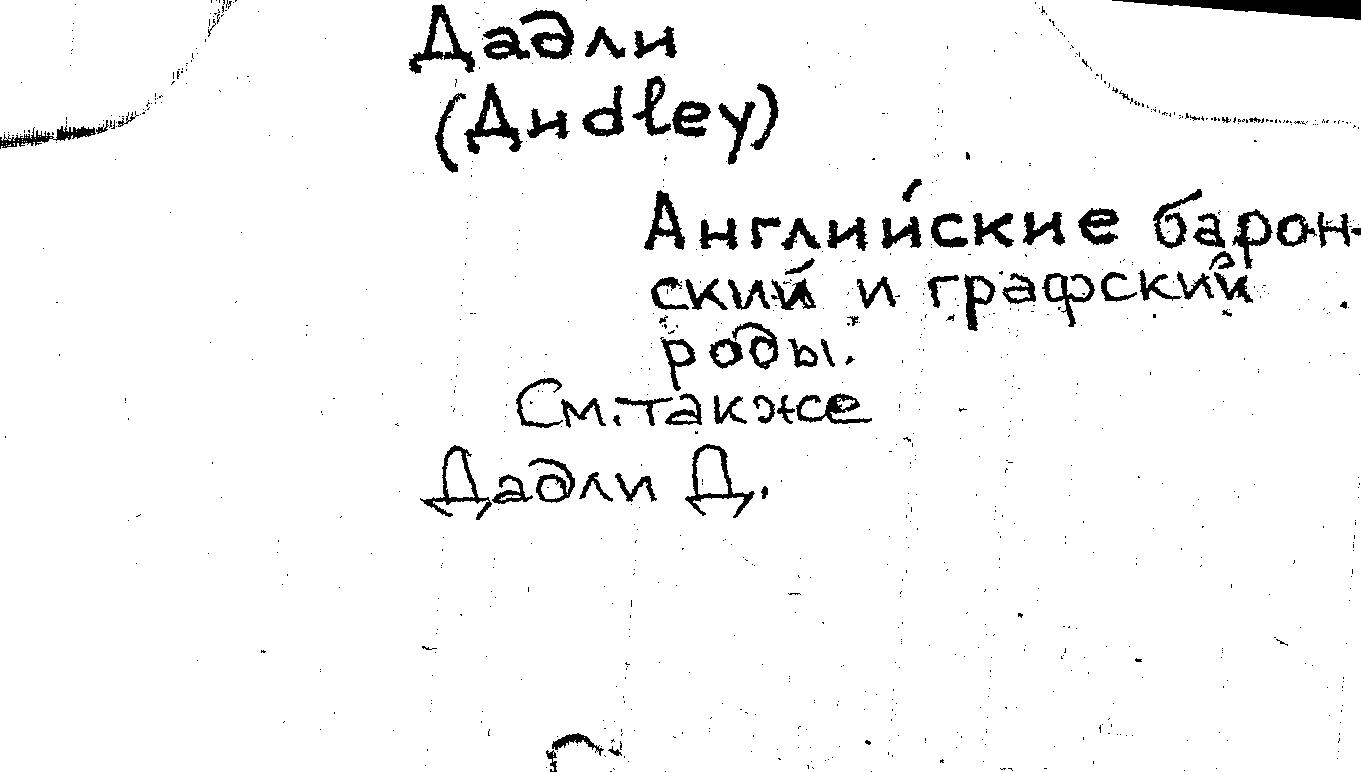 Дадли
(Диdley)
Английские барон-
ский и графский
роды.
См. также
Дадли Д.